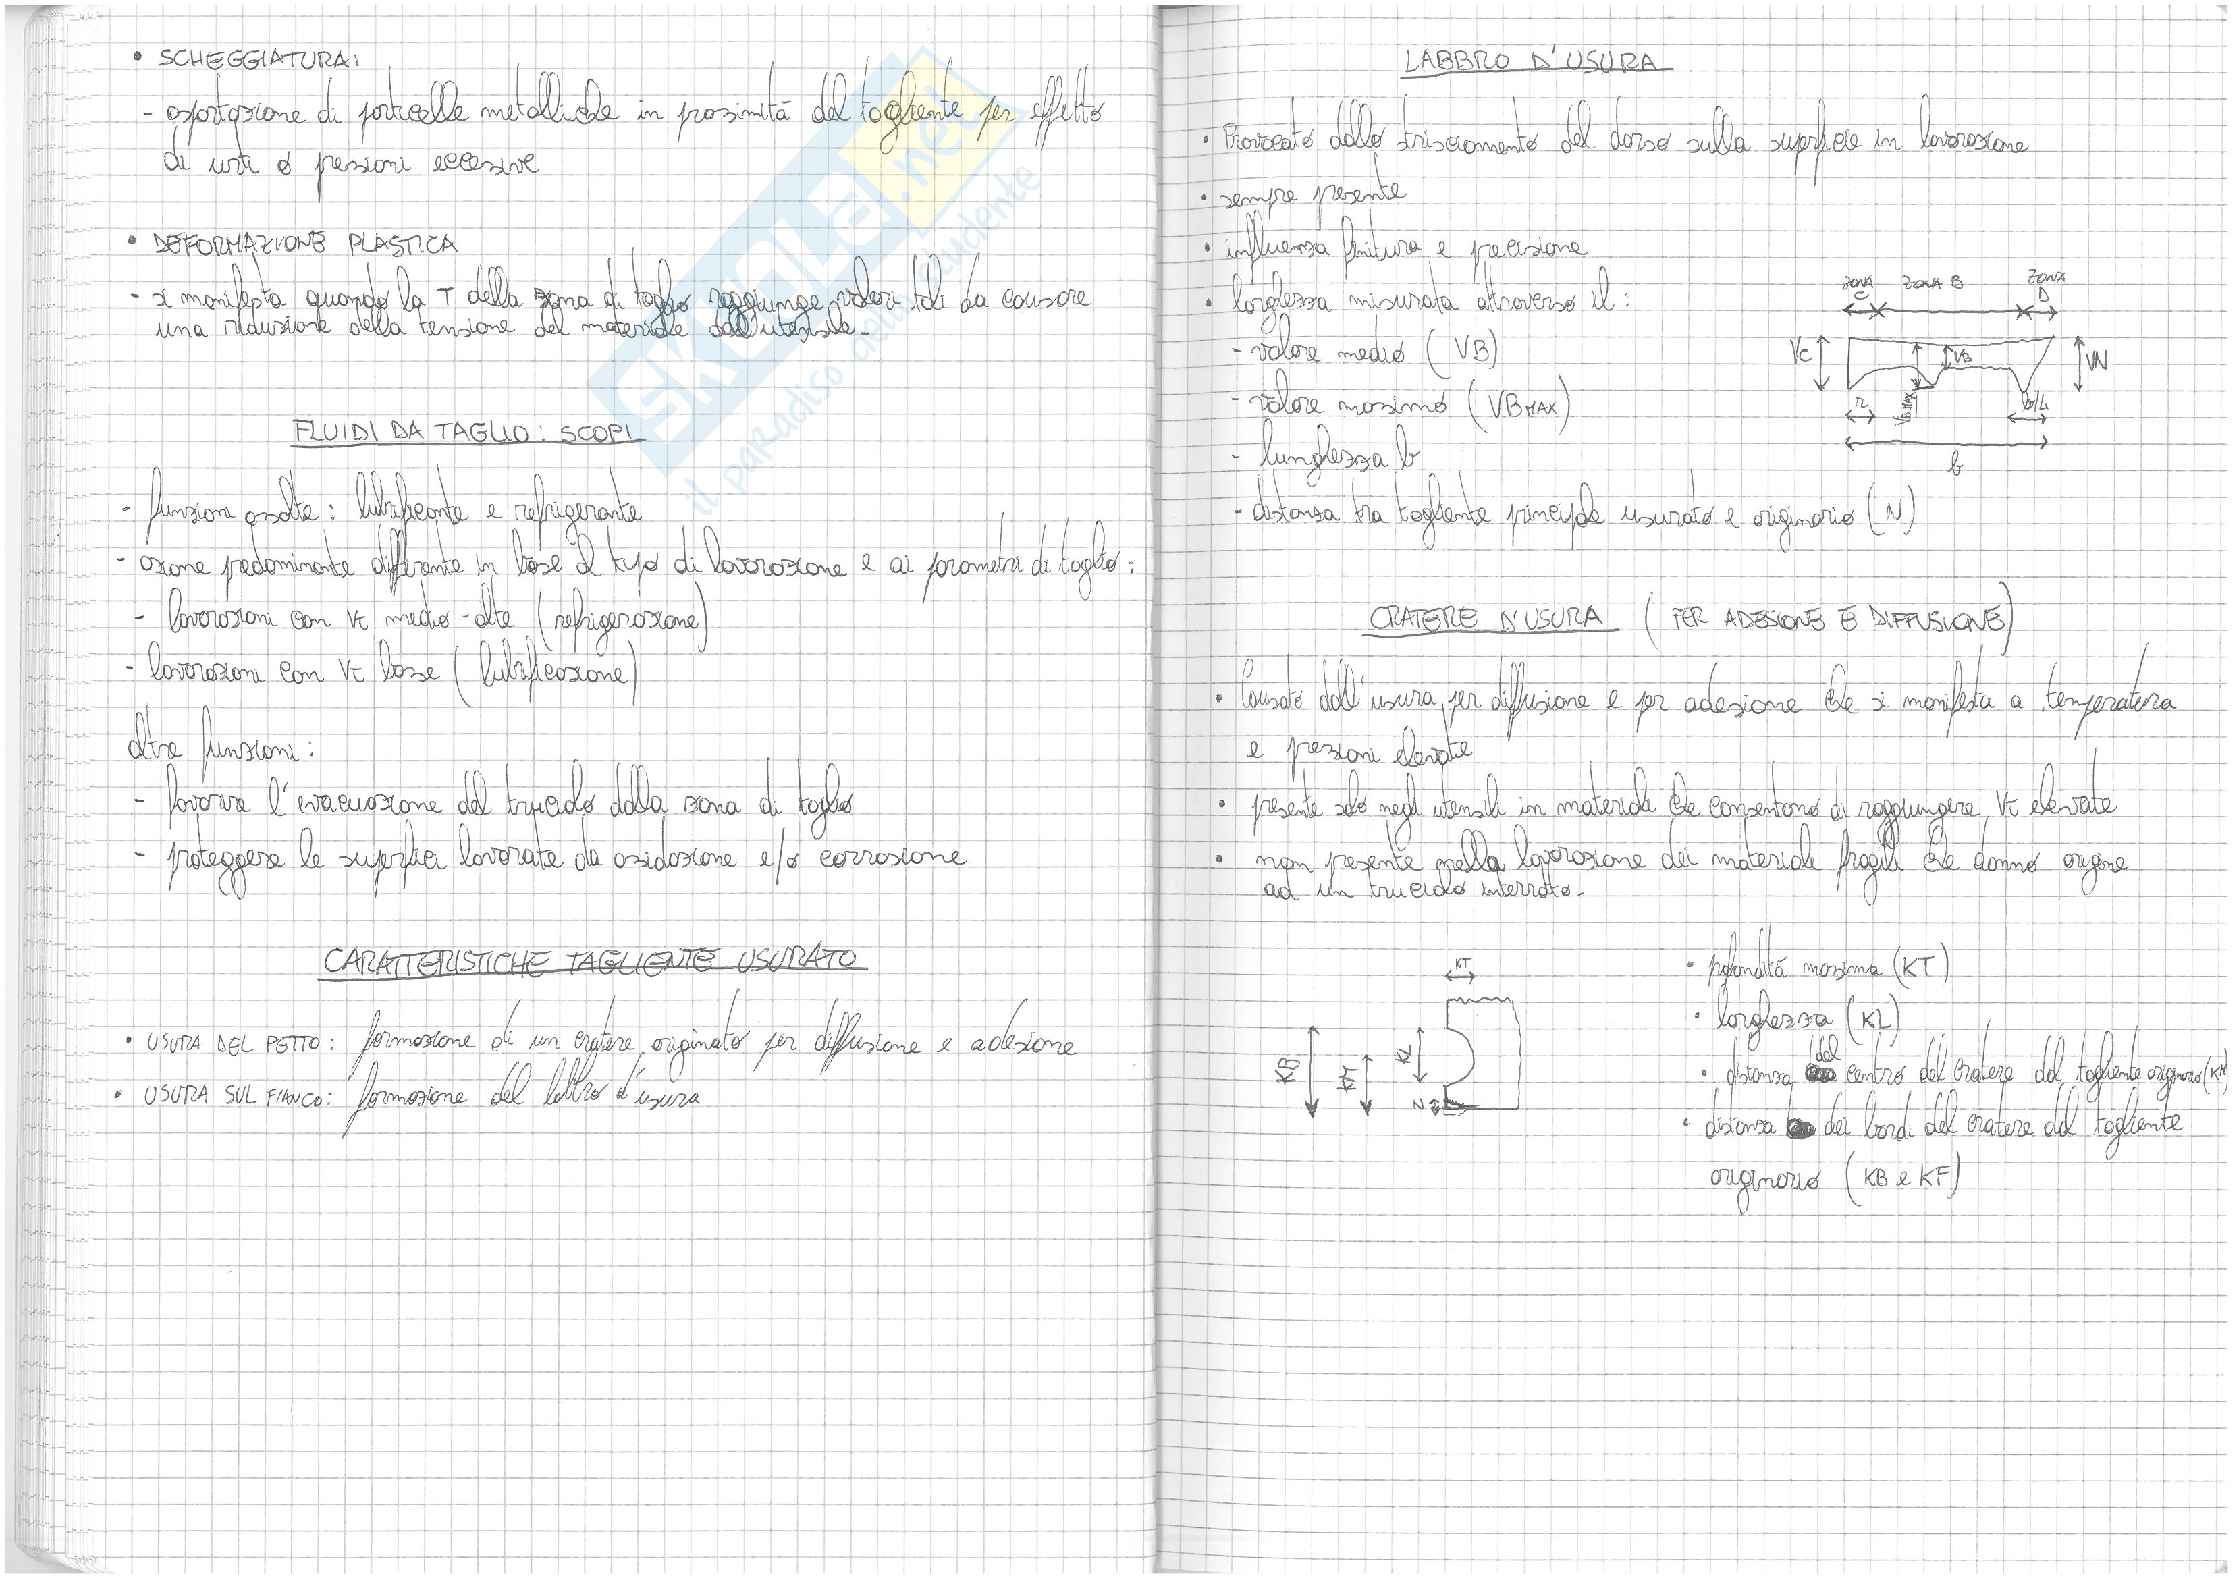 • SCHEGGIATURA:
- asportazione di particelle metalliche in prossimità del tagliente per effetto
di urti o pressioni eccessive
• DEFORMAZIONE PLASTICA
- si manifesta quando la T della zona di taglio raggiunge valori tali da causare
una riduzione della tensione del materiale dell'utensile.
FLUIDI DA TAGLIO: SCOPI
- funzioni assolte: lubrificante e refrigerante
- azione predominante differente in base al tipo di lavorazione e ai parametri di taglio:
- lavorazioni con Vt medio-alte (refrigerazione)
- lavorazioni con Vt basse (lubrificazione)
altre funzioni:
- favorire l'evacuazione del truciolo dalla zona di taglio
- proteggere le superfici lavorate da ossidazione e/o corrosione
CARATTERISTICHE TAGLIENTE USURATO
• USURA DEL PETTO: formazione di un cratere originato per diffusione e adesione
• USURA SUL FIANCO: formazione del labbro d'usura
SKUOLA.net
il paradiso dello studente
LABBRO D'USURA
• Provocato dallo strisciamento del dorso sulla superficie in lavorazione
• sempre presente
• influenza finitura e precisione
• larghezza misurata attraverso il:
- valore medio (VB)
- valore massimo (VBMAX)
- lunghezza b
- distanza tra tagliente principale usurato e originario (N)
ZONA C ZONA B ZONA
VC VB VN
r VBMAX b/4
b
CRATERE D'USURA (PER ADESIONE E DIFFUSIONE)
• Causato dall'usura per diffusione e per adesione che si manifesta a temperatura
e pressioni elevate
• presente solo negli utensili in materiale che consentono di raggiungere Vt elevate
• non presente nella lavorazione dei materiale fragili che danno origine
ad un truciolo interrotto.
KT
KB
N
• profondità massima (KT)
• larghezza (KL)
• distanza del centro del cratere dal tagliente originario (KM)
• distanza dei bordi del cratere dal tagliente
originario (KB e KF)